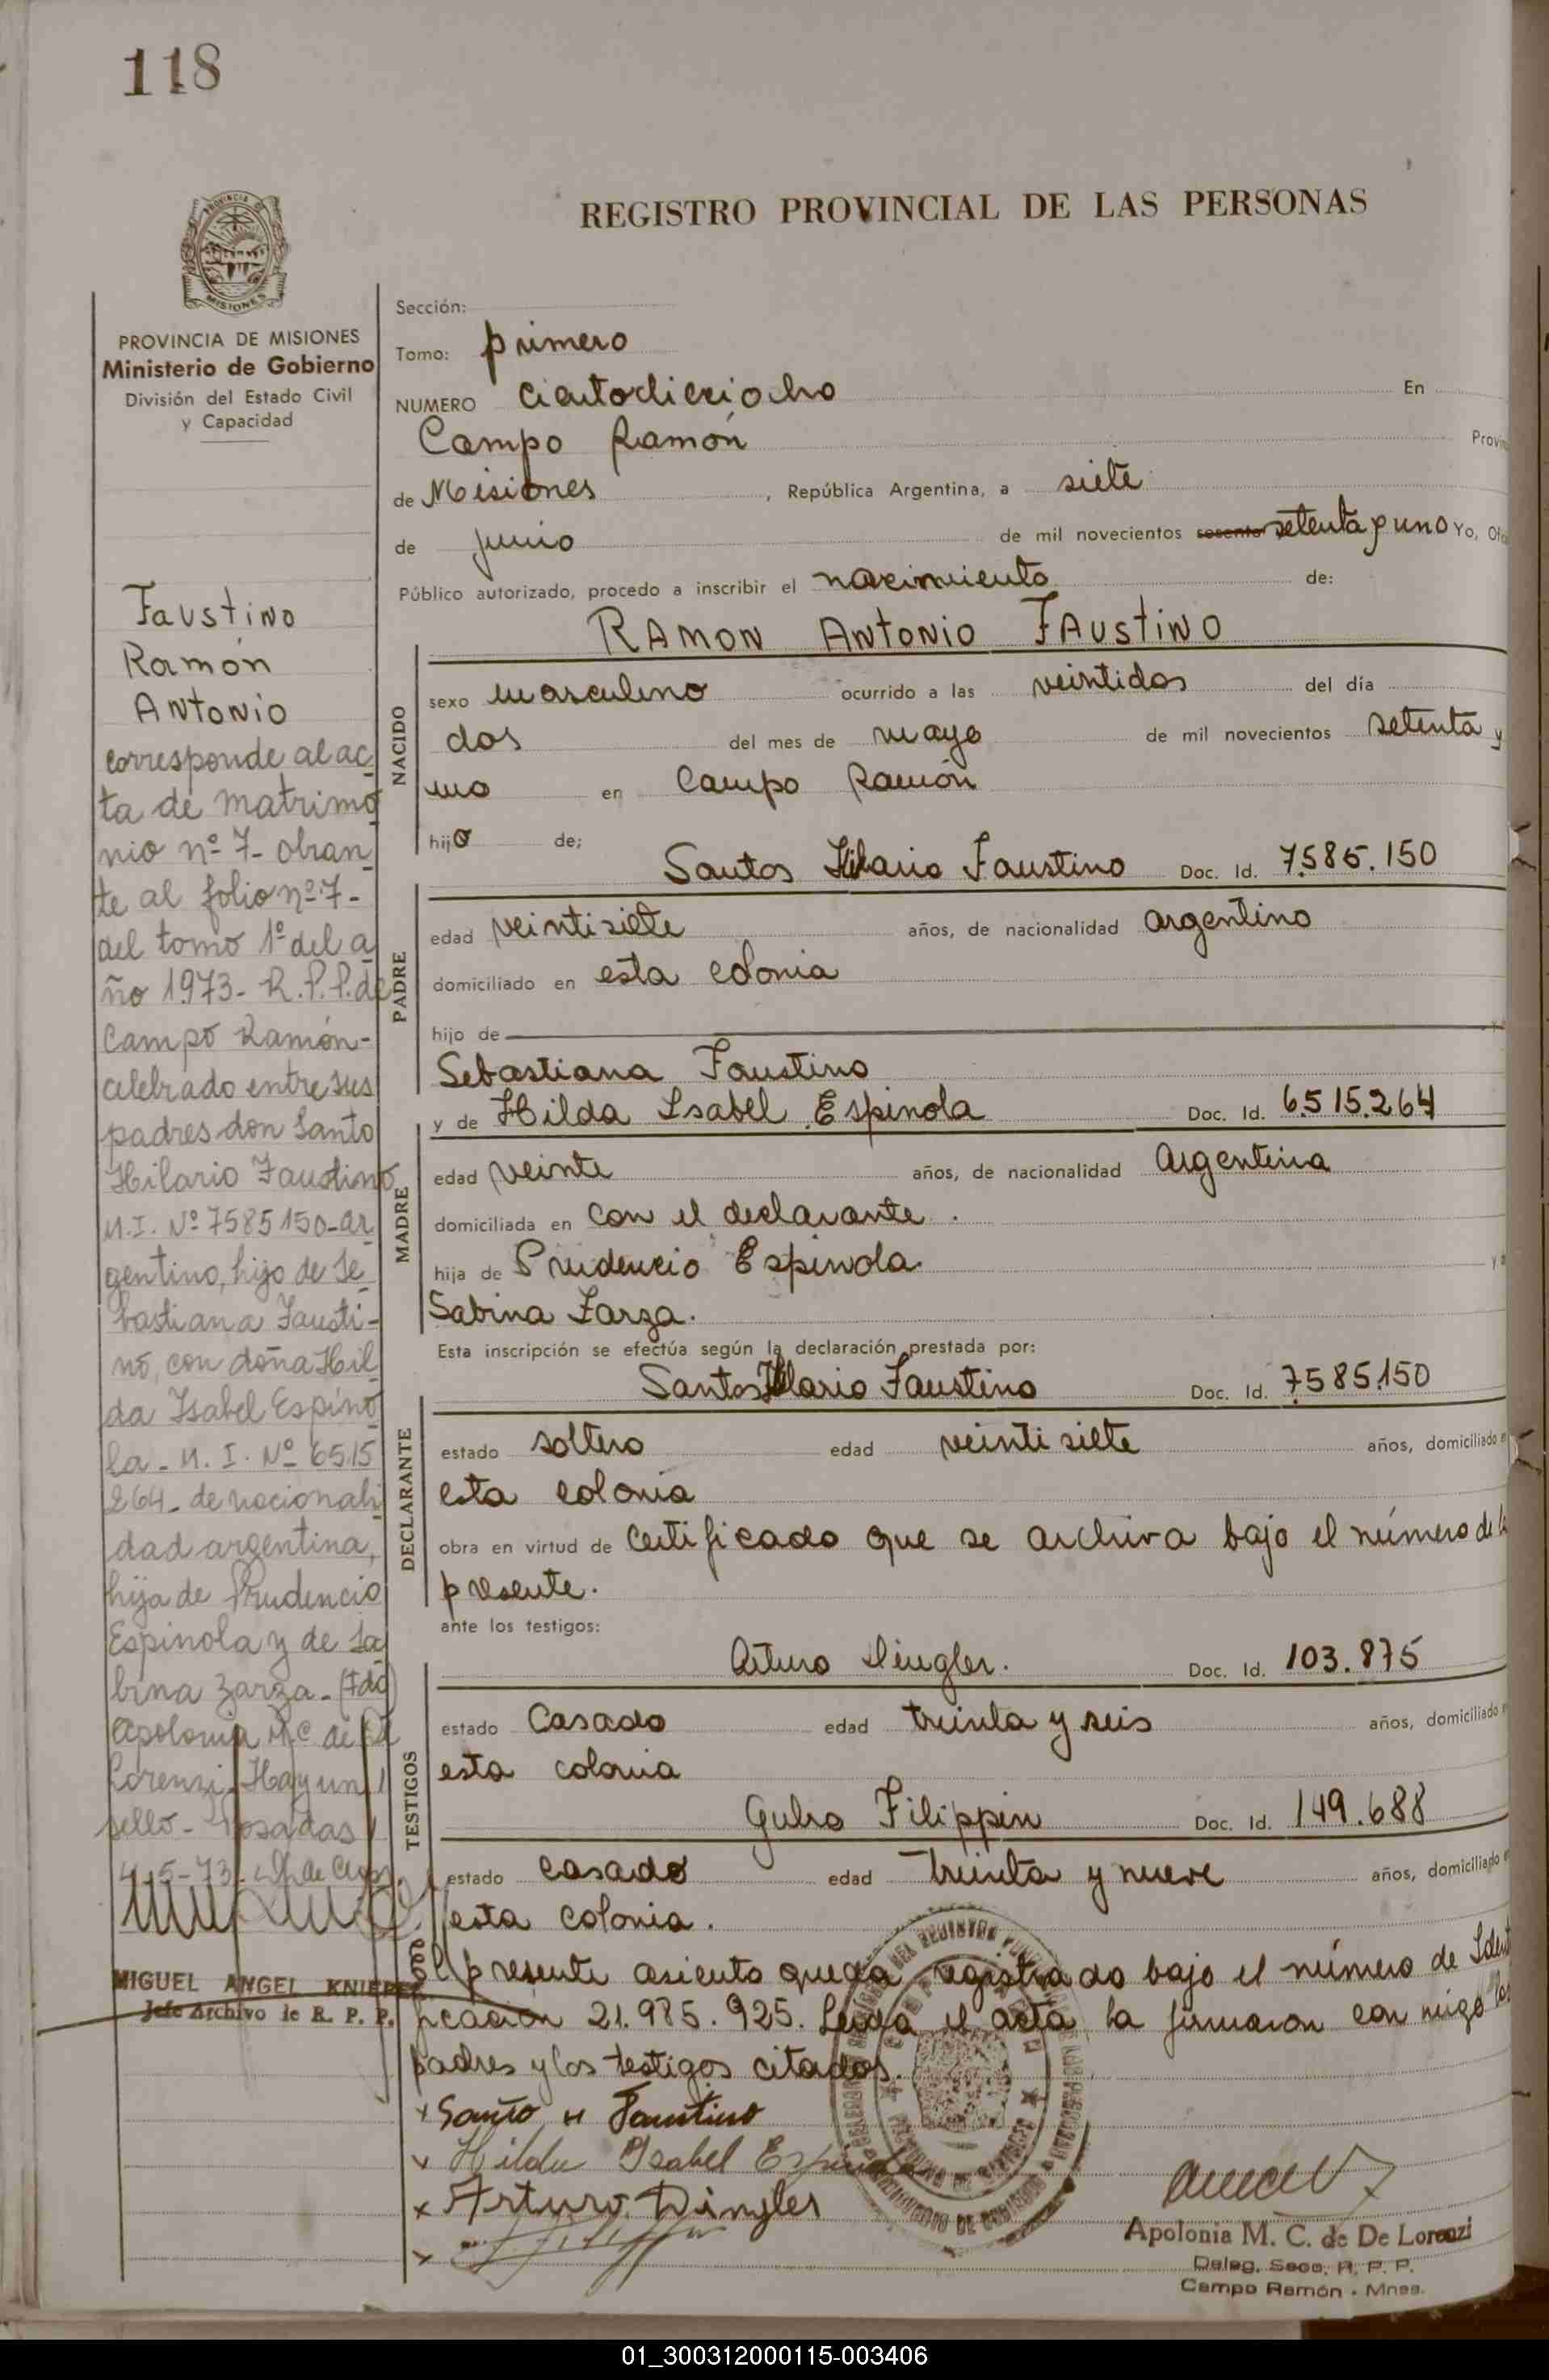 118
REGISTRO PROVINCIAL DE LAS PERSONAS
PROVINCIA DE MISIONES
Ministerio de Gobierno
División del Estado Civil
y Capacidad
Faustino
Ramón
Antonio
corresponde al ac
ta de matrimo
nio nº 7- obran
te al folio nº 7-
del tomo 1º del a
ño 1973- R.P.P. de
Campo Ramón-
celebrado entre sus
padres don Santo
Hilario Faustino
M.I. Nº 7585150-ar
gentino, hijo de Se
bastiana Fausti-
no, con doña Hil
da Isabel Espíno
la - M. I. Nº 6515
264- de nacionali
dad argentina,
hija de Prudencio
Espinola y de Sa
bina Zarza - (Fdo)
Apolonia M.C. de De
Lorenzi - Hay un
sello - Posadas
4-5-73
MIGUEL ANGEL KNIEPE
Jefe Archivo de R. P. P.
Sección:
Tomo: primero
NUMERO cientodieciocho En
Campo Ramón Provin
de Misiones , República Argentina, a siete
de junio de mil novecientos sesenta setenta y uno Yo, Ofi
Público autorizado, procedo a inscribir el nacimiento de:
RAMON ANTONIO FAUSTINO
NACIDO
sexo masculino ocurrido a las veintidos del día
dos del mes de mayo de mil novecientos setenta y
uno en Campo Ramón
hijo de;
Santos Hilario Faustino Doc. Id. 7.585.150
PADRE
edad veintisiete años, de nacionalidad argentino
domiciliado en esta colonia
hijo de
Sebastiana Faustino
y de Hilda Isabel Espinola Doc. Id. 6.515.264
MADRE
edad veinte años, de nacionalidad Argentina
domiciliada en con el declarante.
hija de Prudencio Espinola y
Sabina Zarza.
Esta inscripción se efectúa según la declaración prestada por:
Santos Hilario Faustino Doc. Id. 7.585.150
DECLARANTE
estado soltero edad veintisiete años, domiciliado e
esta colonia
obra en virtud de Certificado que se archiva bajo el número de la
presente.
ante los testigos:
Arturo Dingler. Doc. Id. 103.875
TESTIGOS
estado Casado edad treinta y seis años, domiciliado e
esta colonia
Filippin Doc. Id. 149.688
estado casado edad treinta y nueve años, domiciliado e
esta colonia.
El presente asiento queda registrado bajo el número de Identi
ficación 21.985.925. Leida el acta, la firmaron con migo los
padres y los testigos citados.
x Santo H Faustino
x Hilda Isabel Espinola
x Arturo Dingler
x
Apolonia M. C. de De Lorenzi
Deleg. Secc. R. P. P.
Campo Ramón - Mnes.
01_300312000115-003406